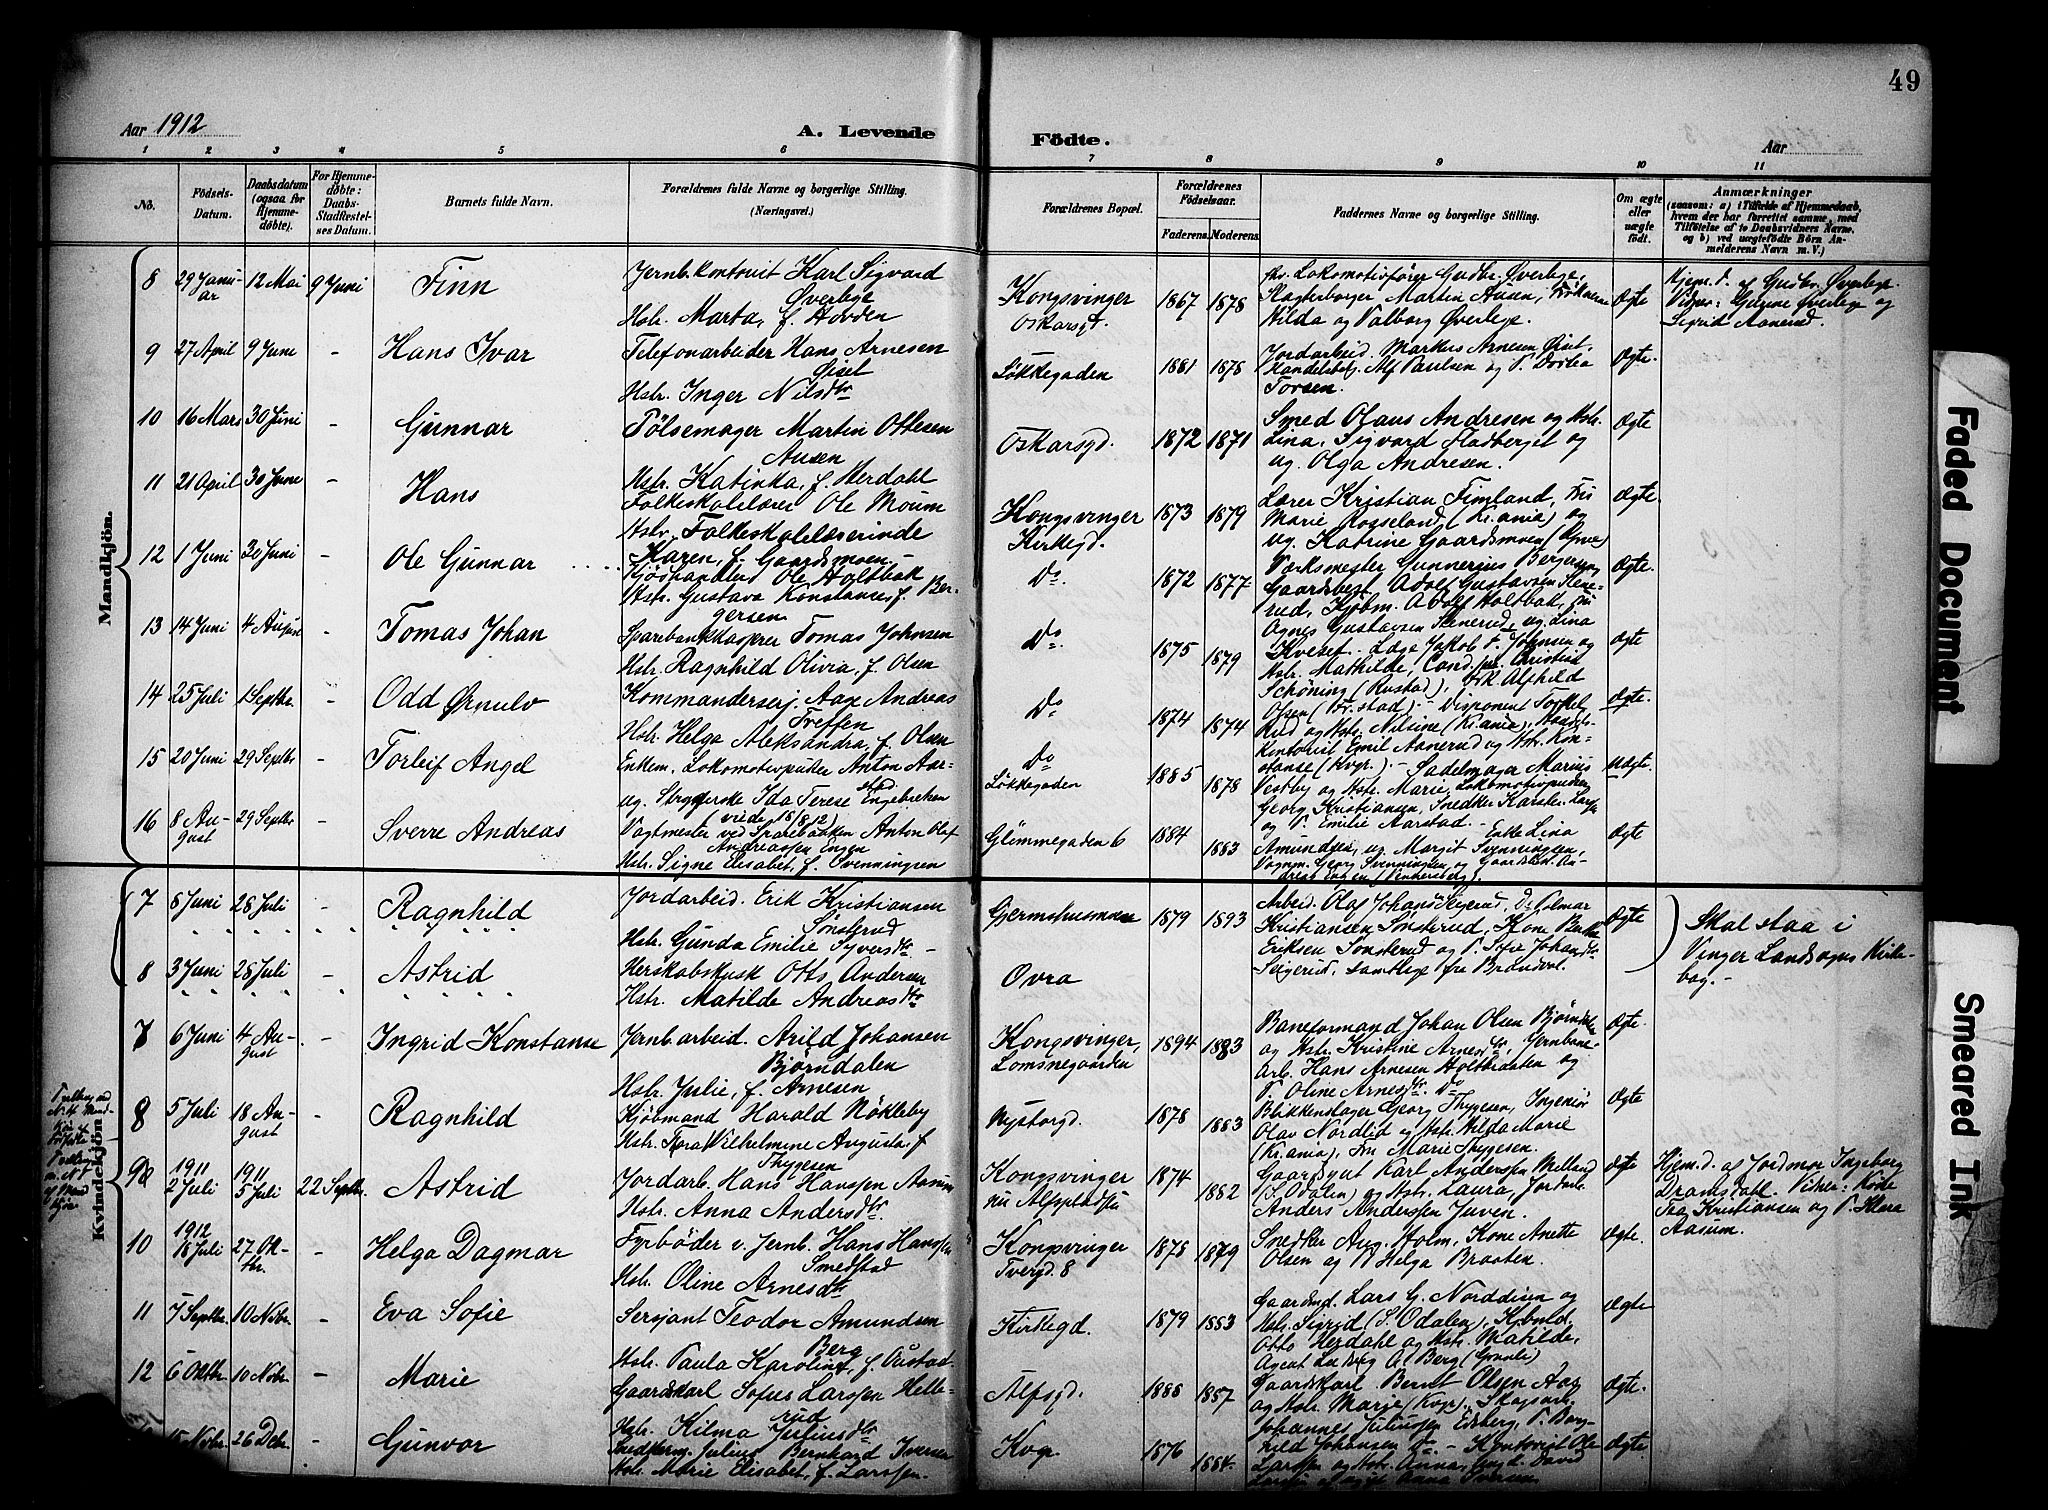 49
Aar 1912
A. Levende
Födte.
Aar
1 2 3 4 5 6 7 8 9 10 11
No.
Födsels-
Datum.
Daabsdatum
(ogsaa for
Hjemme-
døbte).
For Hjemme-
døbte:
Daabs-
Stadfæstel-
ses Datum.
Barnets fulde Navn.
Forældrenes fulde Navne og borgerlige Stilling.
(Næringsvei.)
Forældrenes Bopæl.
Forældrenes
Fødselsaar.
Faderens. Moderens.
Faddernes Navne og borgerlige Stilling.
Om ægte
eller
uægte
født.
Anmærkninger
(saasom: a) i Tilfælde af Hjemmedaab,
hvem der har forrettet samme, med
Tilføielse af to Daabsvidners Navne,
og b) ved uægtefødte Börn An-
melderens Navn m. V.)
Mandkjön.
8 29 Janu-
ar 12 Mai 9 Juni Finn
Jernb.kontorist Karl Sigvard
Øverbye
Hstr. Marta, f. Hovden
Kongsvinger
Oskarsgt.
1867 1878
Lokomotivfører Gudbr. Øverbye,
Slagterborger Martin Ausen,
Hilda og Valborg Øverbye.
Ægte
Hjem.d. af Gudbr. Øverbye.
Vidner: Gunne Øverbye og
Sigrid Aanerud.
9 27 April 9 Juni - Hans Ivar
Telefonarbeider Hans Arnesen
Øiset
Hstr. Inger Nilsdtr
Løkkegaden
1881 1878
Jordarbeid. Markus Arnesen Øiset
Handelsbetj. Alf Paulsen og P. Dortea
Torsen.
Ægte.
10 16 Mars 30 Juni - Gunnar
Pølsemager Martin Ottesen
Ausen
Hstr. Katinka, f. Herdahl
Oskarsgd.
1872 1871
Smed Olaus Andresen og Hstr.
Lina, Sigvard Fladberget og
ug. Olga Andresen.
Ægte
11 21 April 30 Juni - Hans
Folkeskolelærer Ole Moum
Hstr. Folkeskolelærerinde
Karen, f. Gaardsmoen.
Kongsvinger
Kirkegd.
1873 1879
Lærer Kristian Fimland, Fru
Marie Rosseland (Kr.ania) og
ug. Katrine Gaardsmoen
Ægte.
12 1 Juni 30 Juni - Ole Gunnar
Kjøbhandler Ole Holtbak
Hstr. Gustava Konstanse, f. Ber-
gersen
Do.
1872 1877
Værksmester Gunnerius Bergersen
Gaardsbest. Adolf Gustavsen Skine-
rud, Kjøbm. Adolf Holtbak, Fru
Agnes Gustavsen Skinerud, ug. Lina
Kveset.
Ægte.
13 14 Juni 4 August - Tomas Johan
Sparebankkasserer Tomas Johnsen
Hstr. Ragnhild Olivia, f. Olsen
Do.
1875 1879
Læge Jakob F. Johnsen og
Hstr. Mathilde, Cand. jur. Christian
Schöning (Rustad), Frk Alfhild
Olsen (Fr.stad)
Ægte
14 25 Juli 1 Septbr. - Odd Ørnulv
Kommandersrj. Aage Andreas
Treffen
Hstr. Helga Aleksandra, f. Olsen
Do
1874 1874
Disponent Torkel
Rud og Hstr. Nilsine (Kr.ania),
Kontorist Emil Aanerud og Hstr. Kon-
stanse (Kvgr.)
Ægte.
15 20 Juni 29 Septbr - Torleif Angel
Enkem. Lokomotivpudser Anton Aar-
stad
ug. Strygerske Ida Terese Engebretsen
(viede 18/8/12)
Do
Løkkegaden
1885 1878
Sadelmager Marius
Vestby og Hstr. Marie, Lokomotivpudser
Georg Kristiansen, Snedker Karsten Larsen
og P. Emilie Aarstad.
Uægte.
16 8 Au-
gust 29 Septbr - Sverre Andreas
Vagtmester ved Sparebanken Anton Olaf
Andreassen Engen
Hstr. Signe Elisabet, f. Svenningsen
Glömmegaden 6
1884 1883
Enke Lina
Amundsen, ug Margit Svenningsen,
Vognm. Georg Svenningsen og Gaardsbest. An-
dreas Engen (Vinkersberg).
Ægte
Kvindekjön
7 8 Juni 28 Juli - Ragnhild
Jordarbeid. Erik Kristiansen
Sønsterud
Hstr. Gunda Emilie Syversdtr
Germshusmoen
1879 1893
Arbeid. Olaf Johans Seigerud, Do Peimar
Kristiansen Sønsterud, Kone Berthe
Eriksen Sønsterud og P. Sofie Johansdtr
Seigerud, samtlige fra Brandval.
Ægte
Skal staa i
Vinger Landsogns Kirke-
bog.
8 3 Juni 28 Juli - Astrid
Herskabskusk Otto Andersen
Hstr. Matilde Andreasdtr
Ovra
7 6 Juni 4 Au-
gust - Ingrid Konstanse
Jernb.arbeid. Arild Johansen
Björndalen
Hstr. Julie, f. Arnesen
Kongsvinger,
Lomsnegaarden
1894 1883
Baneformand Johan Olsen Bjørndalen
og Hstr. Kristine Arnesdtr, Jernbane-
arb. Hans Arnesen Holtbidalen og
P. Oline Arnesdtr. Do
Ægte.
8 5 Juli 18 Au-
gust - Ragnhild
Kjöbmand Harald Nökleby
Hstr. Tora Vilhelmine Augusta, f.
Thygesen
Nystorgd.
1878 1883
Blikkenslager Georg Thygesen, Ingeniör
Olav Nordlid og Hstr. Hilda Marie
(Kr.ania), Fru Marie Thygesen.
Ægte
9 1911
2 Juli 1911
5 Juli 22 Septbr. Astrid
Jordarb. Hans Hanssen Aasum
Hstr. Anna Andersdtr.
Kongsvinger
nu Alfspladsen
1874 1882
Gaardbryt Karl Anderssen Melland
(S. Odalen) og Hstr. Laura, Jordarb.
Anders Anderssen Juven.
Ægte
Hjem.d. af Jordmor Ingeborg
Dramstahl. Vidner: Enke
Kristiansen og P. Klara
Aasum.
10 1912
18 Juli 27 Ok-
tbr. - Helga Dagmar
Fyrböder v. Jernb. Hans Hanssen
Smedstad
Hstr. Oline Arnesdtr
Kongsvinger
Tvergd. 8
1878 1879
Snedker Aug. Holm, Kone Anette
Olsen og P. Helga Braaten.
Ægte.
11 7 Septbr. 10 Novbr. - Eva Sofie
Sersjant Teodor Amundsen
Berg
Hstr. Paula Karoline, f. Oustad.
Kirkegd.
1879 1883
Gaardmd. Lars G. Norddiren og
Hstr. Sigrid (S. Odalen),
Otto Herdahl og Hstr. Matilde,
Agent Ludvig A. Berg
Ægte
12 6 Oktbr. 10 Novbr. - Marie
Gaardskarl Sofus Larssen Helle-
rud
Hstr. Hilma Juliusdtr
Alfsgd.
1888 1887
Gaardskarl Bernt Olsen Aas
og Hstr. Marie (Kvgr.), Skogsarb.
Johannes Juliussen Edsberg, P. Borg-
hild Johansen Do
Ægte.
15 Novbr. 26 Dcbr. - Gunvor
Snedkerm. Julius Bernhard Iversen
Hstr. Marie Elisabet, f. Larssen.
Kvgr.
1876 1884.
Kontorist Ole
Larssen og Hstr. Anna, David
Ægte
Faded Document
Smeared Ink